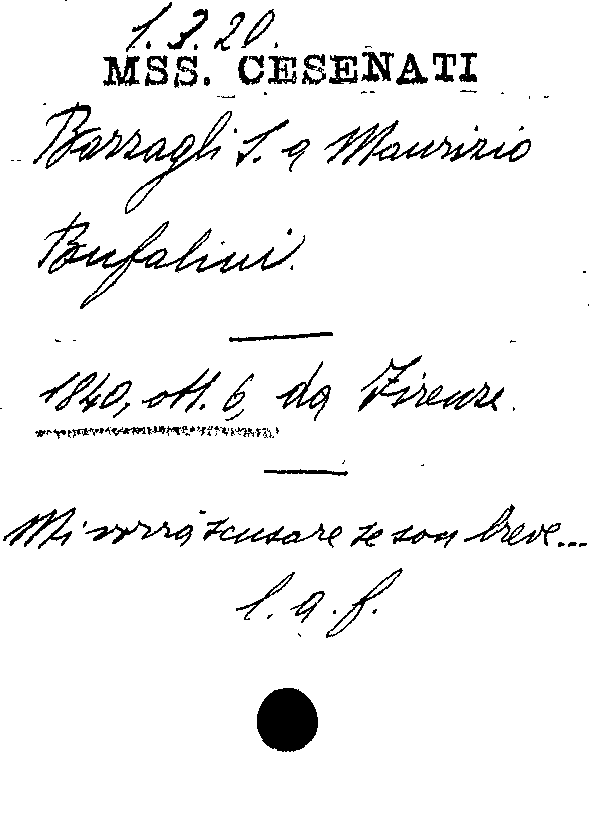 1.3.20.
MSS. CESENATI
Barzagli S. a Maurizio
Bufalini.
1840, ott. 6, da Firenze.
Mi vorrà scusare se son breve...
l. a. f.